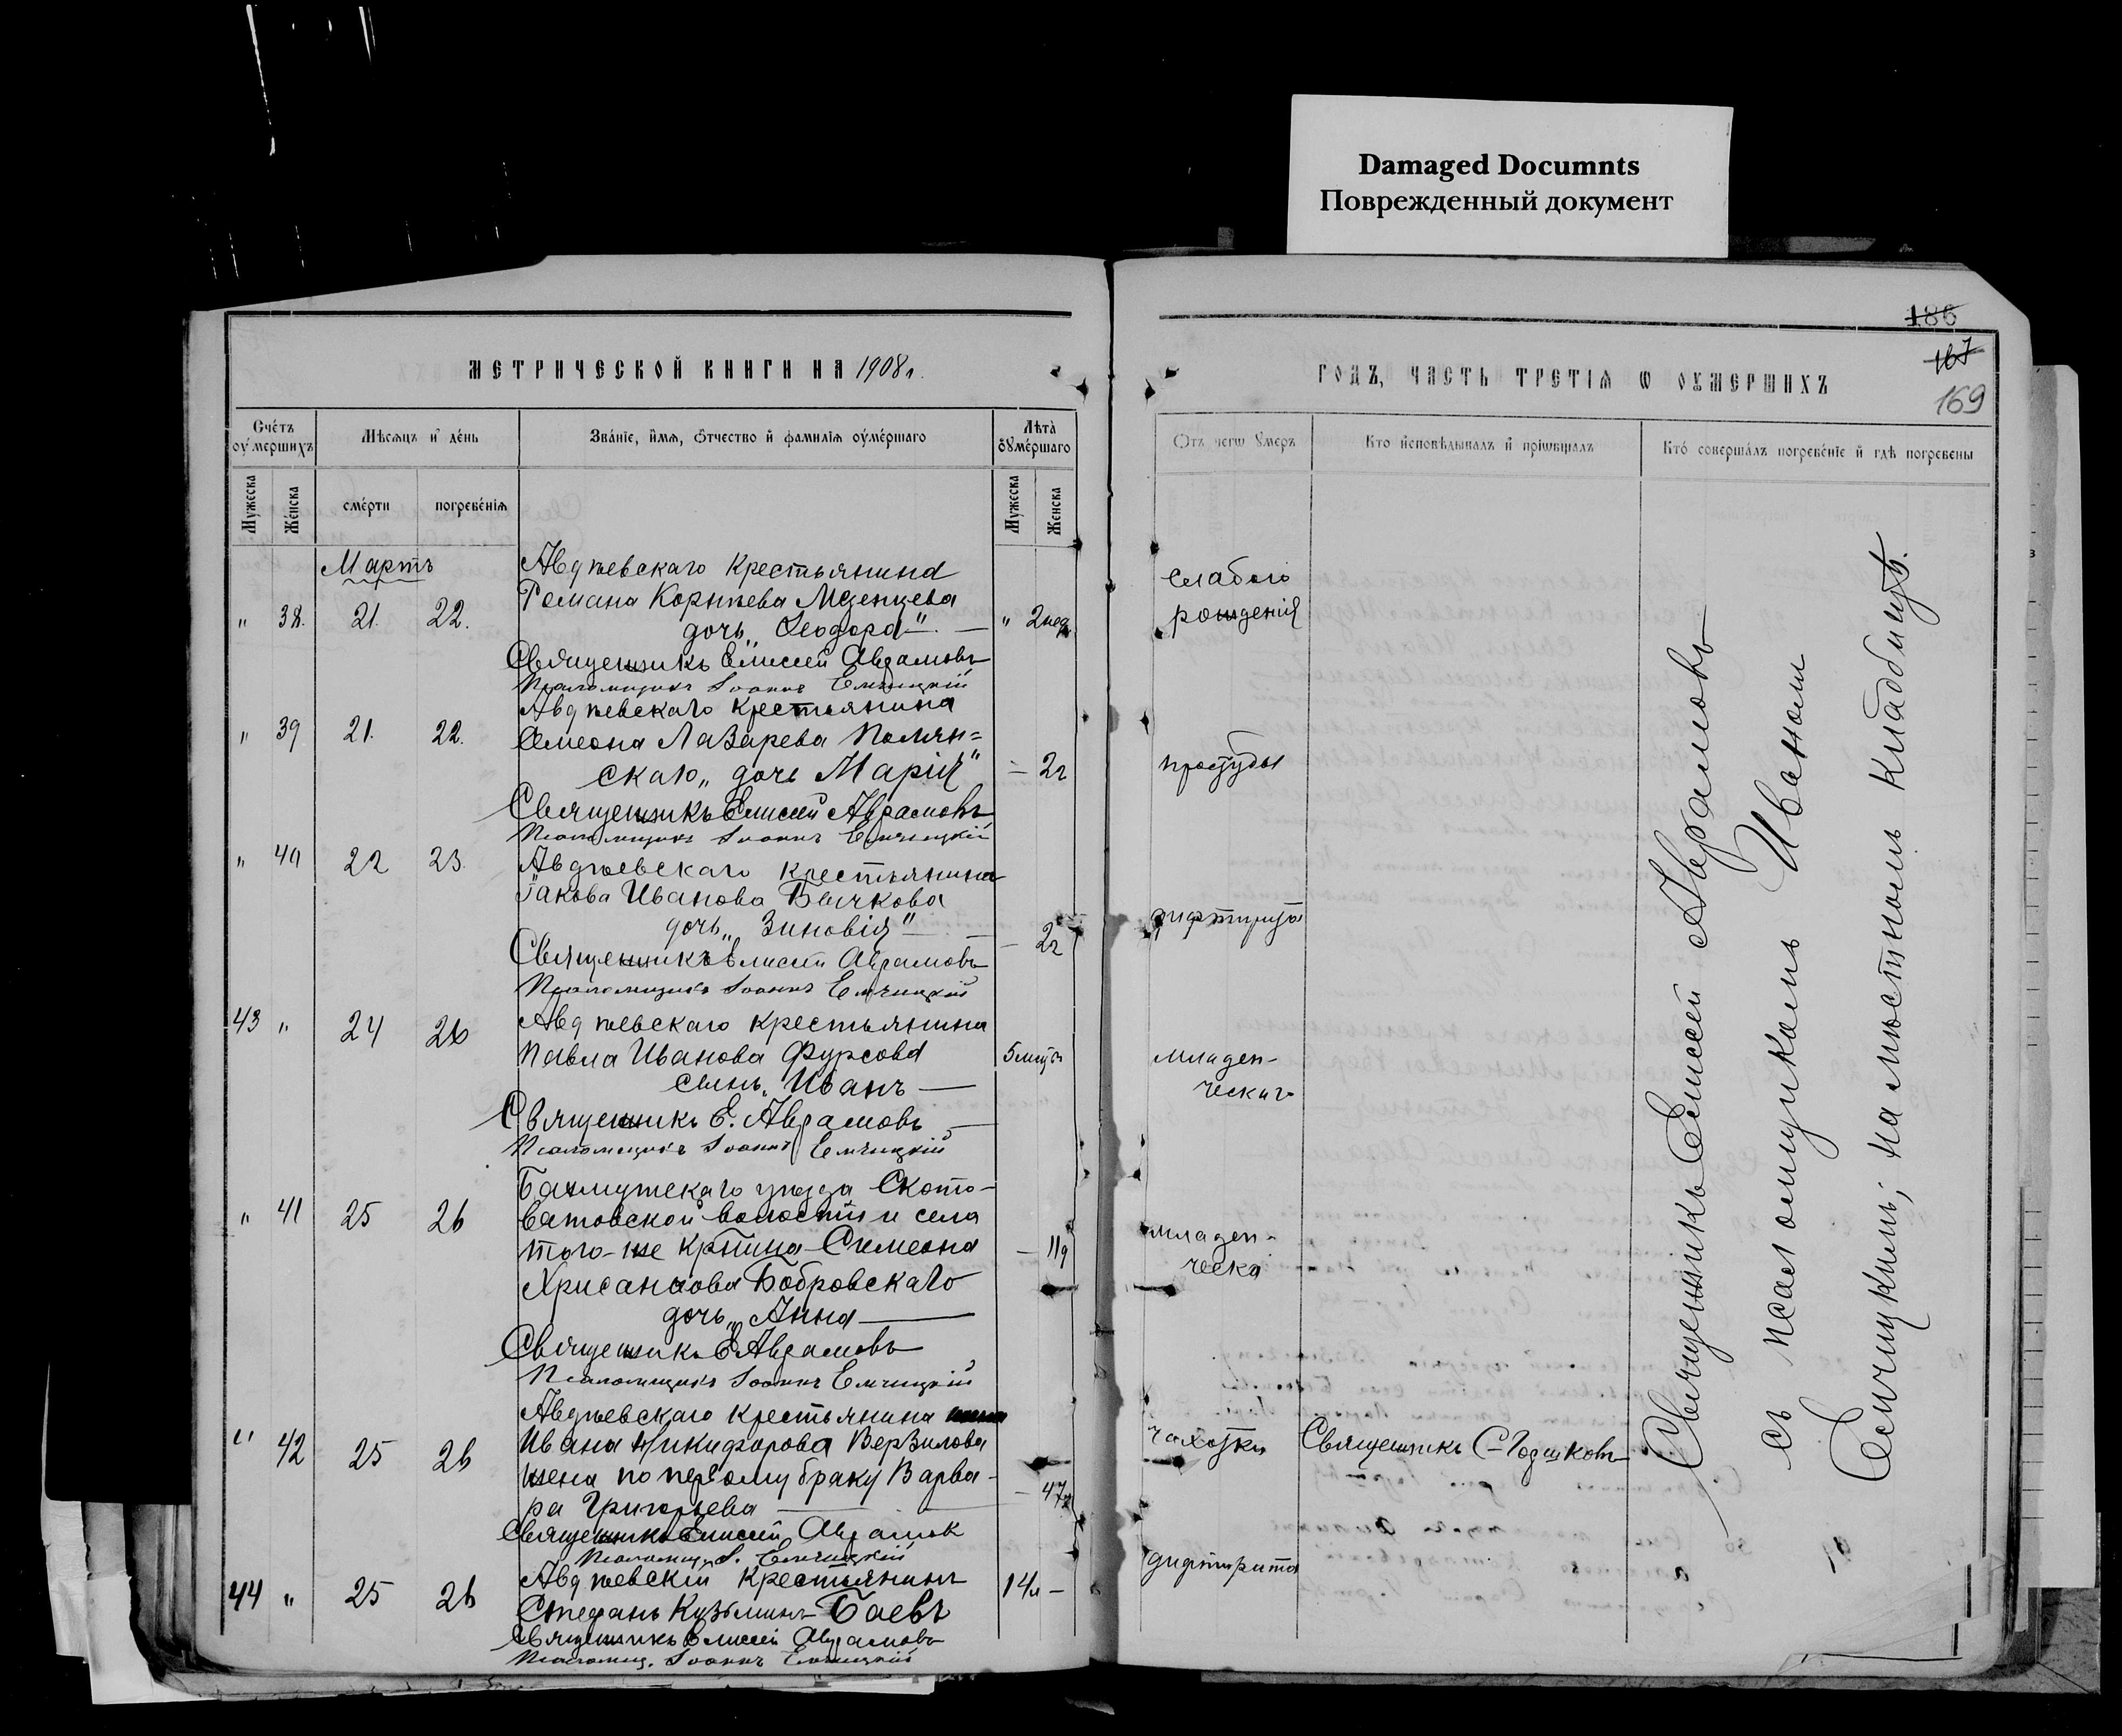 Damaged Documnts
Поврежденный документ
МЕТРИЧЕСКОЙ КНИГИ НА 1908 г.
Счётъ оумершихъ
Мѣсяцъ и день
Званіе, имя, отчество и фамилія оумершаго
Лѣта оумершаго
Мужеска
Женска
смерти
погребенія
Мужеска
Женска
Мартъ
Авдѣевскаго крестьянина
Романа Корнѣева Мезенцева
" 38. 21. 22. дочь „Ѳеодора" " 2 нед
Священникъ Елисей Аврамовъ
Псаломщикъ Іоаннъ Емчицкій
Авдѣевскаго крестьянина
" 39 21. 22. Симеона Лазарева Полян=
скаго „дочь Марія" — 2 г
Священникъ Елисей Аврамовъ
Псаломщикъ Іоаннъ Емчицкій
" 40 22 23. Авдѣевскаго крестьянина
Іакова Иванова Бычкова
дочь „Зиновія" — 2 г
Священникъ Елисей Аврамовъ
Псаломщикъ Іоаннъ Емчицкій
43 " 24 26 Авдѣевскаго крестьянина
Павла Иванова Фурсова
сынъ „Иванъ —
Священникъ Е. Аврамовъ
Псаломщикъ Іоаннъ Емчицкій
Бахмутскаго уѣзда Ското-
" 41 25 26 ватовской волости и села
того-же кр–тина Симеона — 11 д
Хрисанѳова Бобровскаго
дочь „Анна —
Священникъ Е. Аврамовъ
Псаломщикъ Іоаннъ Емчицкій
Авдѣевскаго крестьянина
" 42 25 26 Ивана Никифорова Верзилова
жена по первому браку Варва-
ра Григорьева — 47 л
Священникъ Елисей Аврамовъ
Псаломщ. І. Емчицкій
Авдѣевскій крестьянинъ 14 л —
44 " 25 26 Стефанъ Кузьминъ Баевъ
Священникъ Елисей Аврамовъ
Псаломщ. Іоаннъ Емчицкій
186
167
169
ГОДЪ, ЧАСТЬ ТРЕТІЯ Ѡ ОУМЕРШИХЪ
Отъ чегѡ умеръ
Кто исповѣдывалъ и пріѡбщалъ
Кто совершалъ погребеніе и гдѣ погребены
слабого
рожденія
простуды
дифтирита
младен-
ческаго
младен-
ческа
чахотки
Священникъ С. Годяковъ
дифтирита
Священникъ Елисей Аврамовъ
съ псаломщикомъ Иваномъ
Емчицкимъ; на мѣстномъ кладбищѣ.